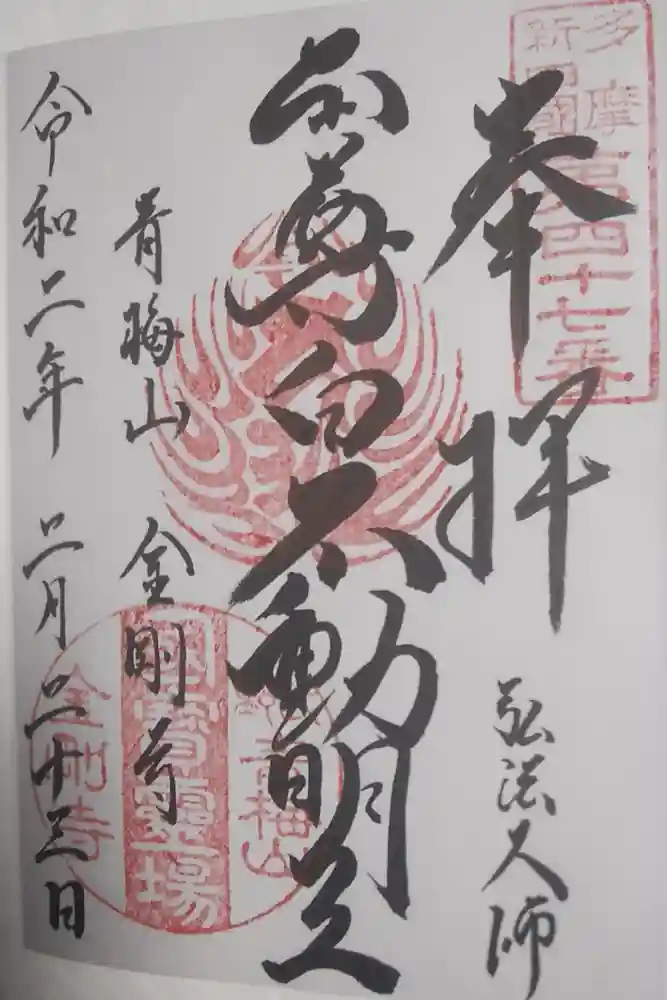 多摩
新四國
第四十七番
奉拝
弘法大師
本尊白不動明王
青梅山
靈場
金剛寺
青梅山 金剛寺
令和二年 二月二十三日